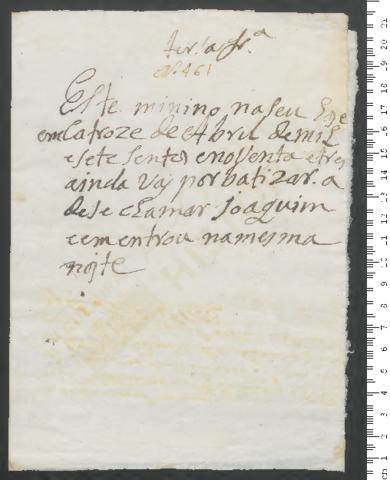 Nº 461
Este minino naseu hoje
em Catroze de Abril de mil
e sete sentos e noventa e tres
ainda vaj por batizar. a
de se chamar Joaquim
e em entrou na mesma
nojte